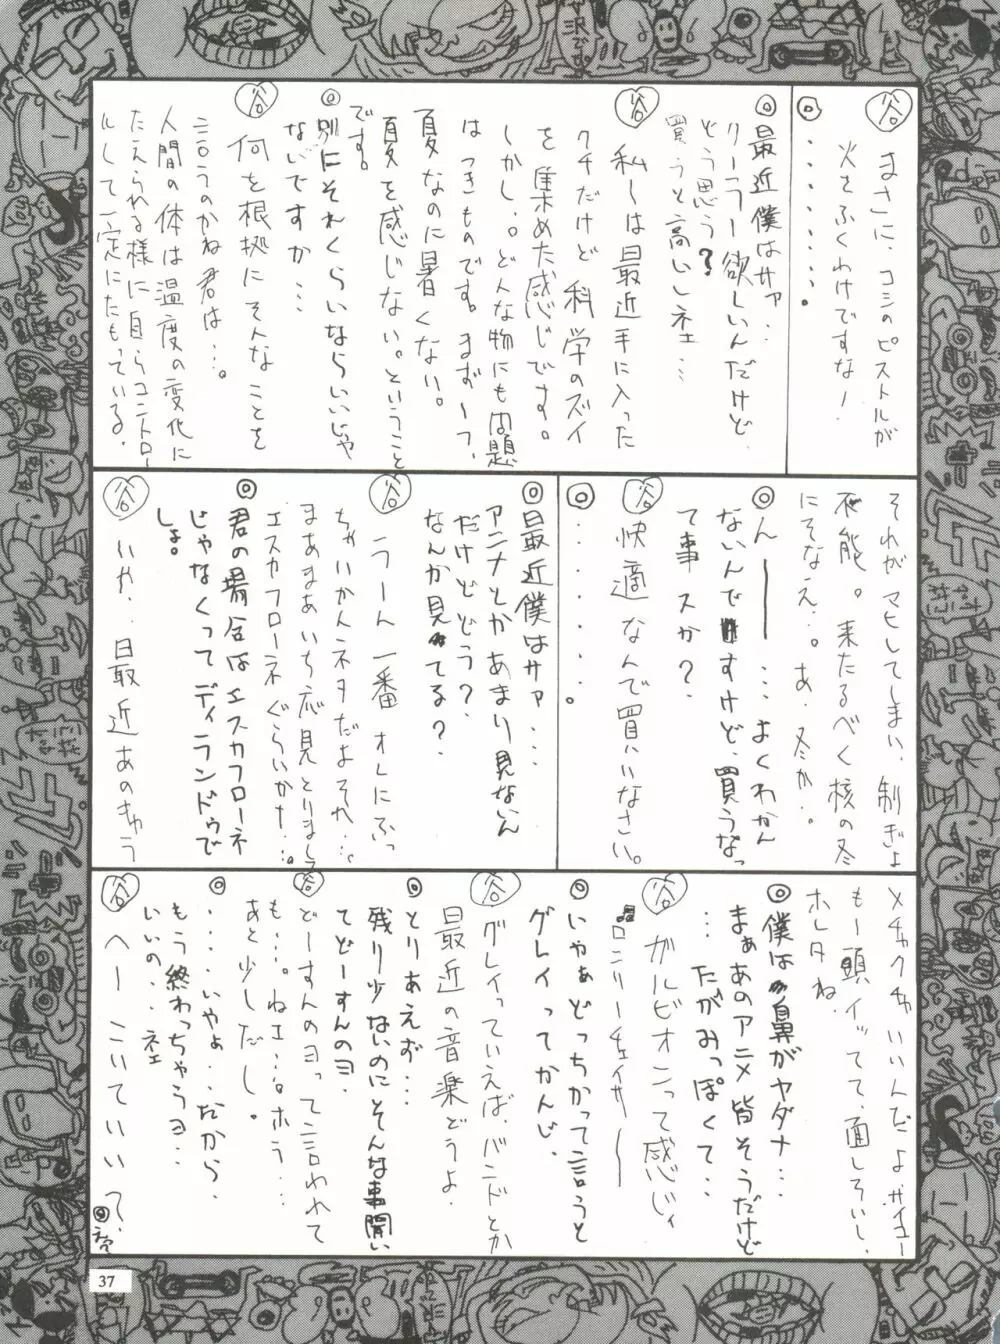 谷
まさに、コミのピストルが
火をふくわけですな!
◎
・・・・・・・・。
◎最近僕はサァ…
リーラー欲しいんだけど、
どう思う?
買うと高いしネェ…
谷
私〜は最近手に入った
クチだけど科学のズイ
を集めた感じです。
しかし。。どんな物にも問題
はつきものです。まず一つ、
夏なのに暑くない。
夏を感じない。ということ
です。
◎
別にそれくらいならいいじゃ
ないですか…
谷
何を根拠にそんなことを
言うのかね君は…。
人間の体は温度の変化に
たえられる様に自らコントロー
ルして一定にたもっている、
それがマヒしてしまい、制ぎょ
不能。来たるべく核の冬
にそなえ…。あ、冬か。
◎ん―――…よくわかん
ないんですけど、買うなっ
て事スか?
谷
快適なんで買いなさい。
◎
・・・・・・。
◎最近僕はサァ…
アニメとかあまり見ないん
だけどどう?
なんか見てる?
谷
うーん一番オレにふっ
ちゃいかんネタだよそれ…。
まあまあいち応見とりまして
エスカフローネぐらいか†…。
◎
君の場合はエスカフローネ
じゃなくってディランドゥで
しょ。
谷
いや…最近あのきゅう
メチャクチャいいんだよ、サイコー
もー頭イッてて、面しろいし、
ホレタね
◎僕は鼻がヤダナ…
まぁあのアニメ皆そうだけど
…たがみっぽくて…
谷
ガルビオンって感じィ
♫ロンリーチェイサー――
◎
いやぁどっちかって言うと
グレイってかんじ
谷
グレイっていえば、バンドとか
最近の音楽どうよ、
◎
とりあえず…
残り少ないのにそんな事聞い
てどーすんのヨ、
谷
どーすんのヨって言われて
も…。ねェ…。ホラ…
あと少しだし。
◎
・・・・いやょ・・だから、
もう終わっちゃうヨ…
いいの・・ネェ
谷
へー こいていいて、
37